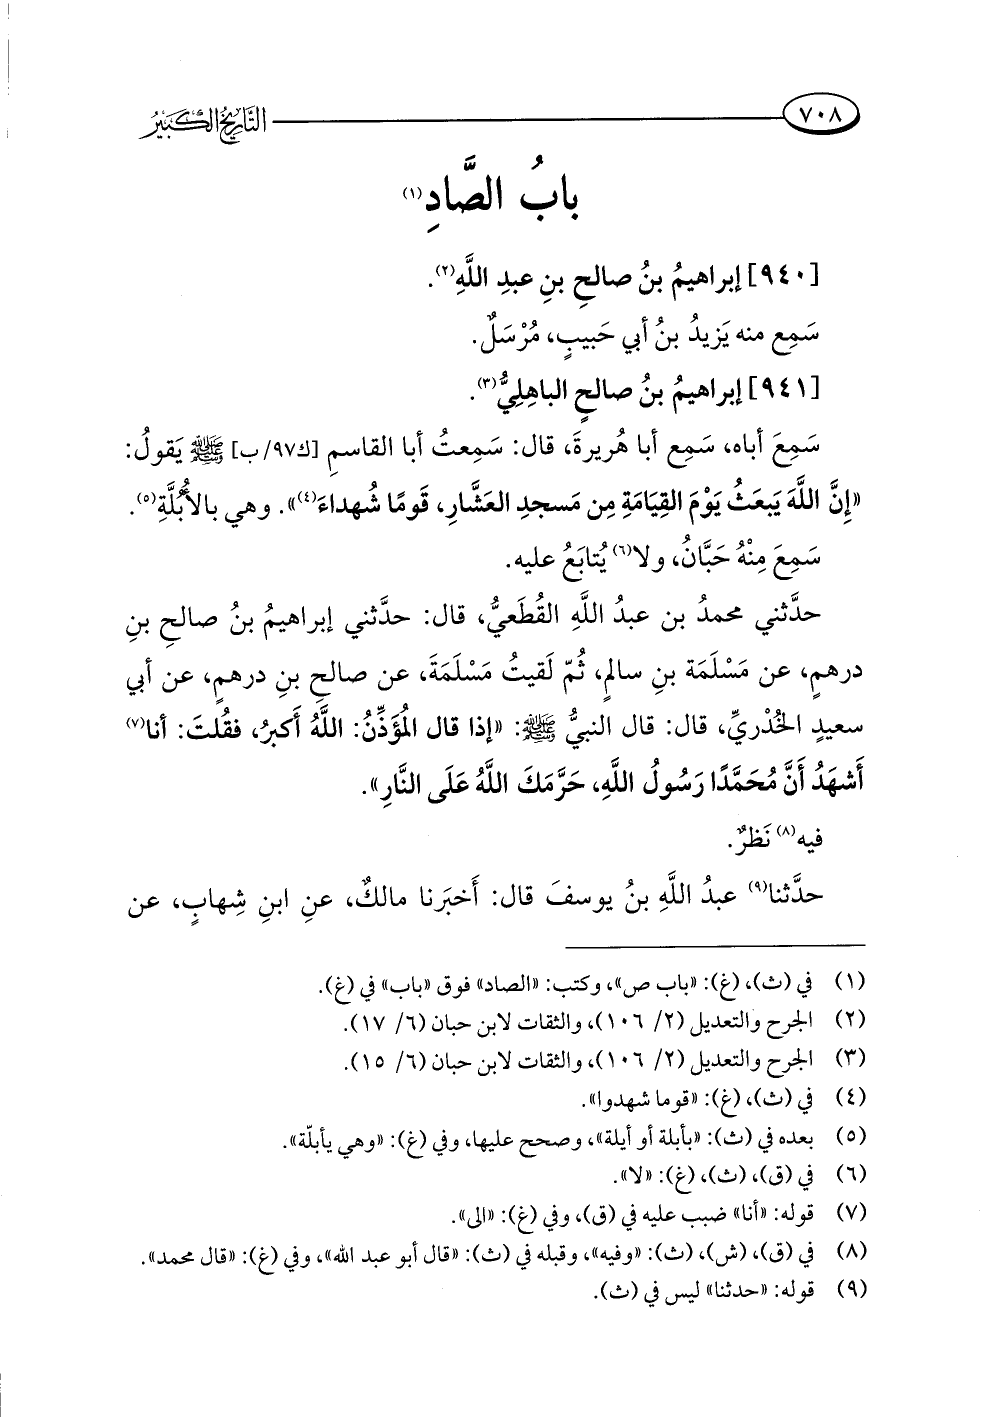 ٧٠٨ التَّارِيخُ الكَبِيرُ
بابُ الصَّادِ(١)
[٩٤٠] إبراهيمُ بنُ صالحِ بنِ عبدِ اللَّهِ(٢).
سَمِع منه يَزيدُ بنُ أبي حَبيبٍ، مُرْسَلٌ.
[٩٤١] إبراهيمُ بنُ صالحٍ الباهِلِيُّ(٣).
سَمِعَ أباه، سَمِع أبا هُريرةَ، قال: سَمِعتُ أبا القاسمِ [ك٩٧/ب] ﷺ يَقولُ:
«إِنَّ اللَّهَ يَبعَثُ يَوْمَ القِيَامَةِ مِن مَسجدِ العَشَّارِ، قَومًا شُهداءَ(٤)». وهي بالأُبُلَّةِ(٥).
سَمِعَ مِنْهُ حَبَّانُ، ولا(٦) يُتابَعُ عليه.
حدَّثني محمدُ بن عبدُ اللَّهِ القُطَعيُّ، قال: حدَّثني إبراهيمُ بنُ صالحِ بنِ
درهمٍ، عن مَسْلَمَة بنِ سالمٍ، ثُمّ لَقيتُ مَسْلَمَةَ، عن صالحِ بنِ درهمٍ، عن أبي
سعيدٍ الخُدْريِّ، قال: قال النبيُّ ﷺ: «إذا قال المُؤَذِّنُ: اللَّهُ أكبرُ، فقُلتَ: أنا(٧)
أَشهَدُ أَنَّ مُحَمَّدًا رَسُولُ اللَّهِ، حَرَّمَكَ اللَّهُ عَلَى النَّارِ».
فيه(٨) نَظرٌ.
حدَّثنا(٩) عبدُ اللَّهِ بنُ يوسفَ قال: أَخبَرنا مالكٌ، عنِ ابنِ شِهابٍ، عن
(١) في (ث)، (غ): «باب ص»، وكتب: «الصاد» فوق «باب» في (غ).
(٢) الجرح والتعديل (٢/ ١٠٦)، والثقات لابن حبان (٦/ ١٧).
(٣) الجرح والتعديل (٢/ ١٠٦)، والثقات لابن حبان (٦/ ١٥).
(٤) في (ث)، (غ): «قوما شهدوا».
(٥) بعده في (ث): «بأبلة أو أيلة»، وصحح عليها، وفي (غ): «وهي يأبلّة».
(٦) في (ق)، (ث)، (غ): «لا».
(٧) قوله: «أنا» ضبب عليه في (ق)، وفي (غ): «الى».
(٨) في (ق)، (ش)، (ث): «وفيه»، وقبله في (ث): «قال أبو عبد الله»، وفي (غ): «قال محمد».
(٩) قوله: «حدثنا» ليس في (ث).